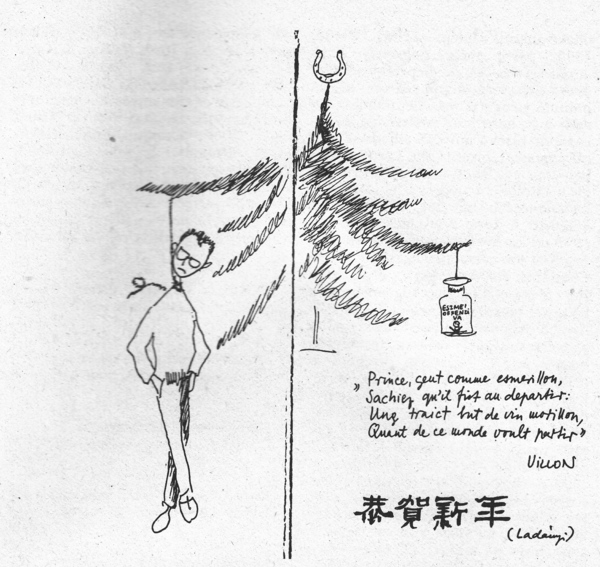 ESZMEI
OFFENZI
VA
„Prince, gent comme esmerillon,
Sachiez qu'il fist au departir:
Ung traict but de vin morillon,
Quant de ce monde voult partir”
VILLON
恭賀新年
(Ladányi)